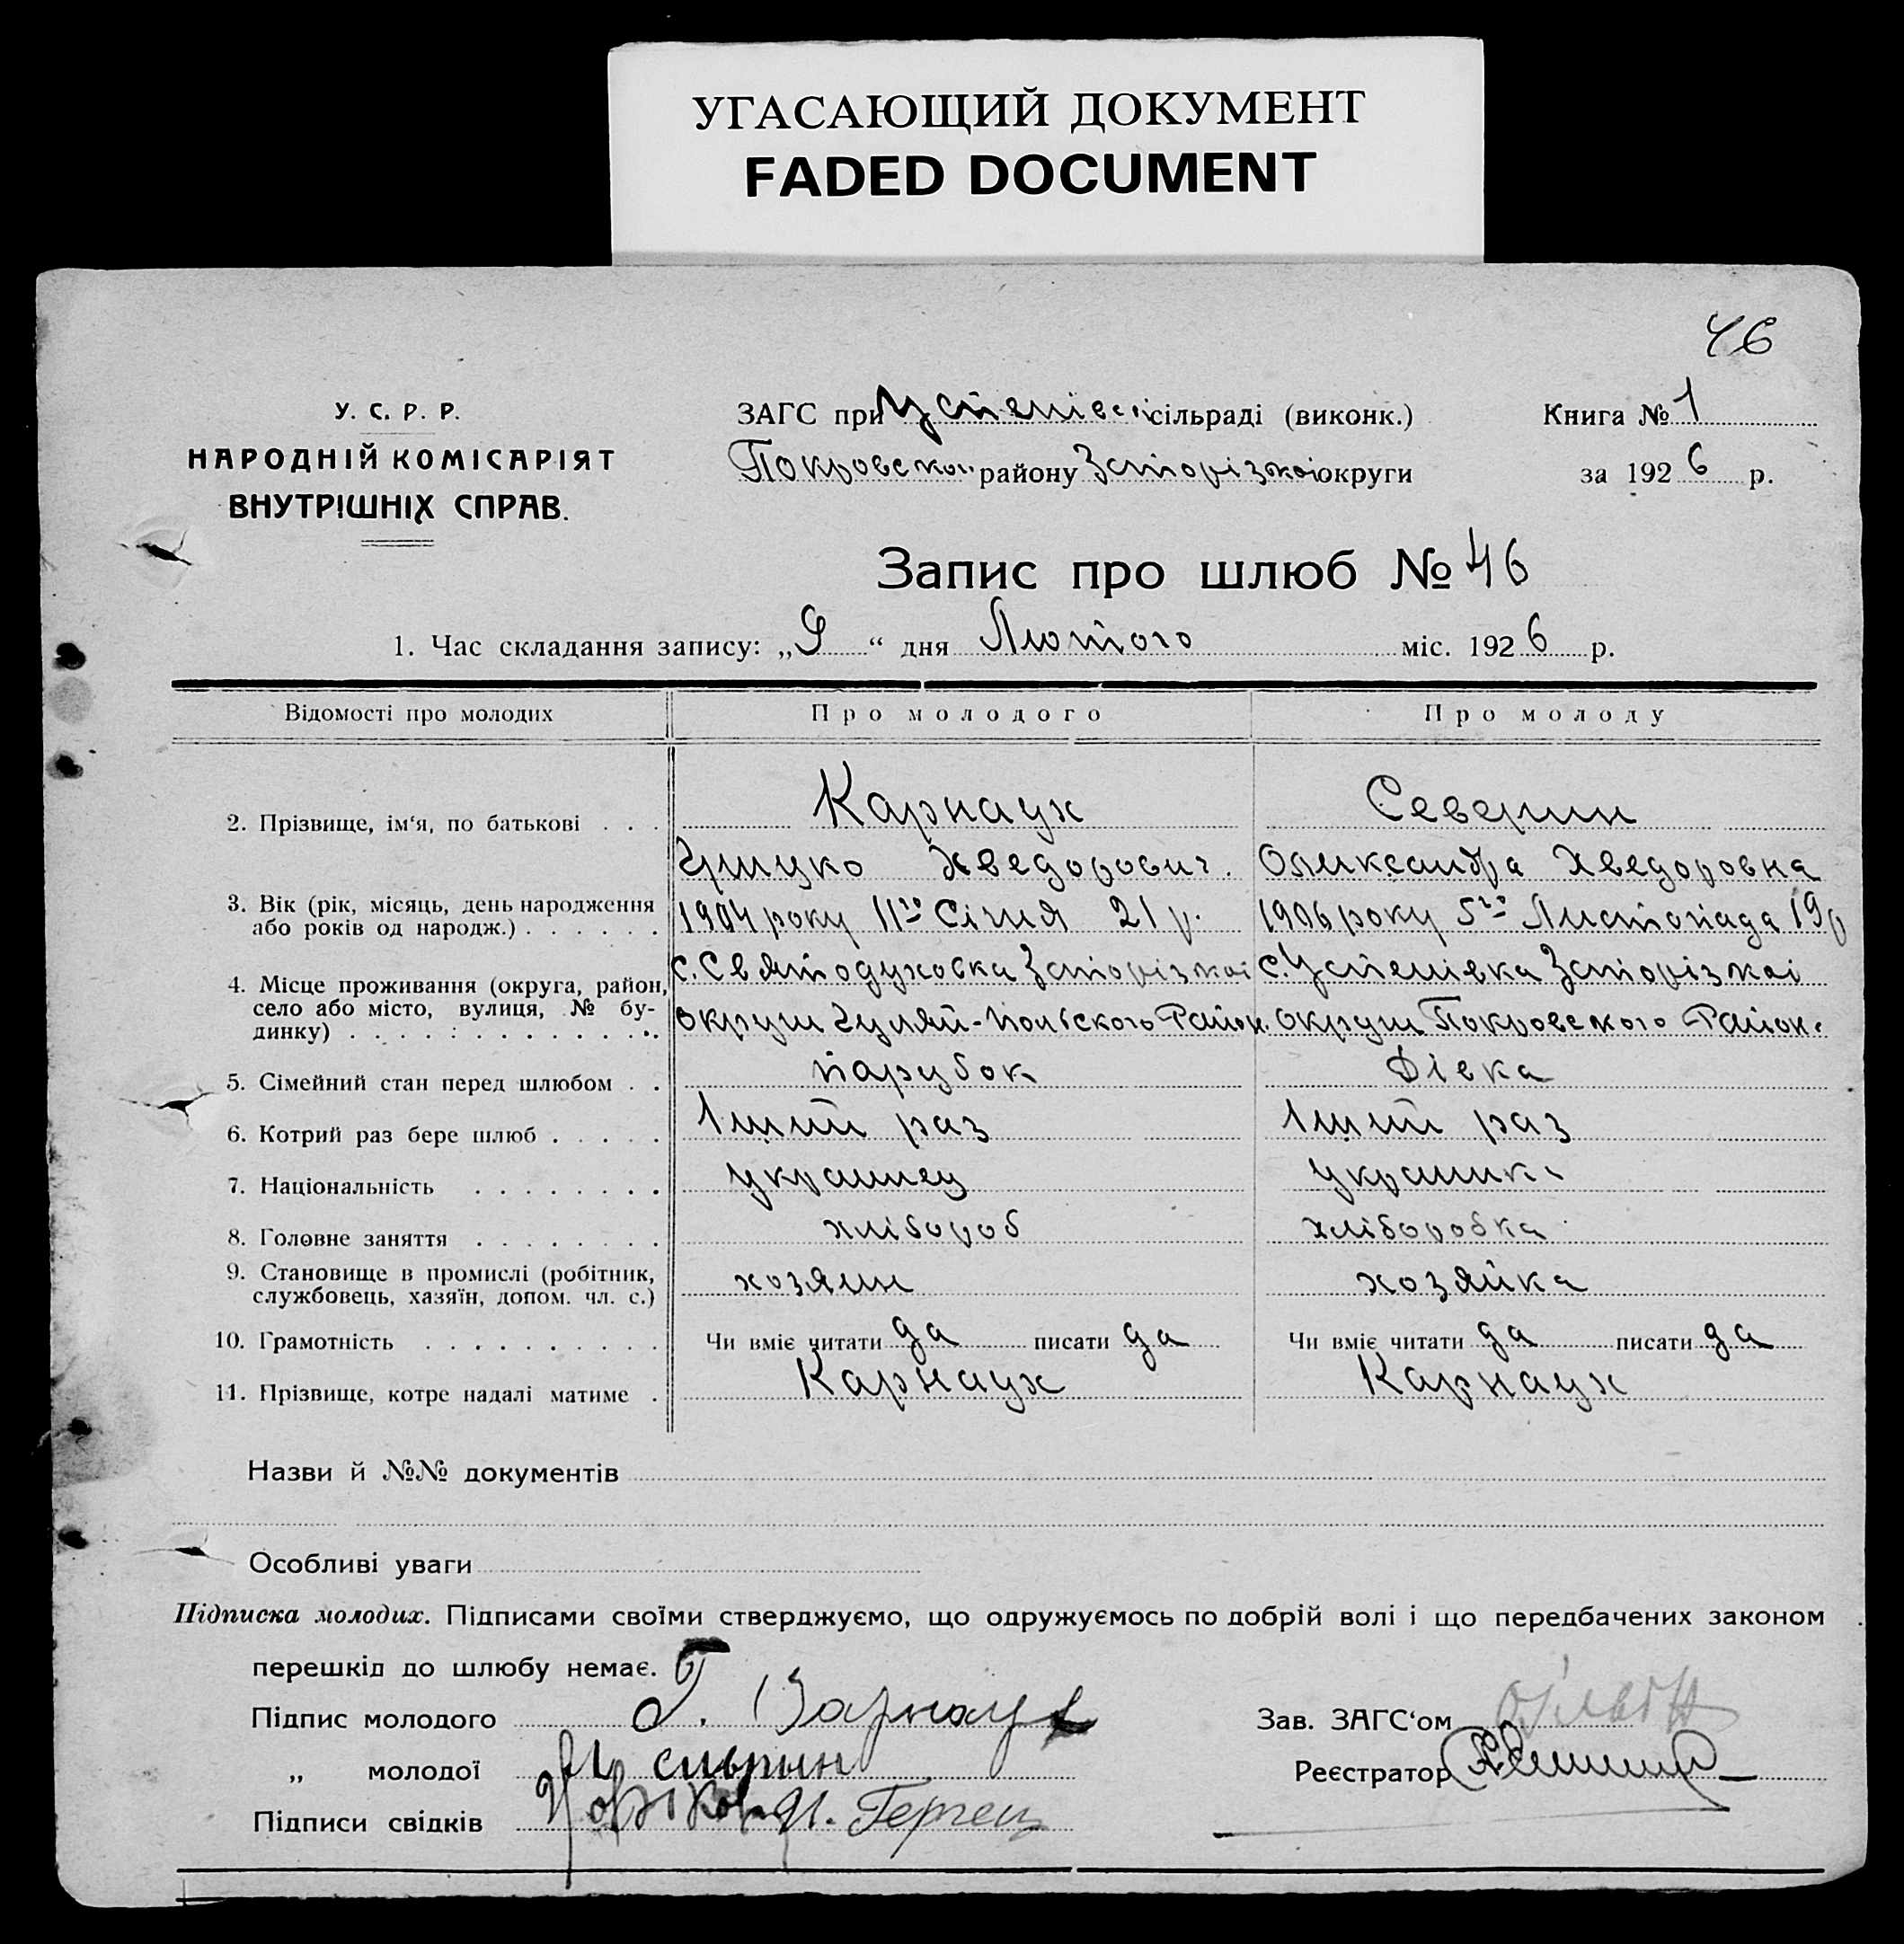 УГАСАЮЩИЙ ДОКУМЕНТ
FADED DOCUMENT
46
У. С. Р. Р.
НАРОДНІЙ КОМІСАРІЯТ
ВНУТРІШНІХ СПРАВ.
ЗАГС при Успенівс. сільраді (виконк.)
Покровської району Запорізкоі округи
Книга № 1
за 1926 р.
Запис про шлюб № 46
1. Час складання запису: „9“ дня Лютого міс. 1926 р.
Відомості про молодих Про молодого Про молоду
2. Прізвище, ім‘я, по батькові . . . Карнаух Северин
Грицко Хведорович. Олександра Хведоровна
3. Вік (рік, місяць, день народження
або років од народж.) . . . . . . 1904 року 11го Січня 21 р. 1906 року 5го Листопада 19р
4. Місце проживання (округа, район,
село або місто, вулиця, № бу-
динку) . . . . . . . . . . . . . с. Святодуховка Запорізкоі с. Успенівка Запорізкоі
округи Гуляй-Польского Район. округи Покровского Район.
5. Сімейний стан перед шлюбом . . парубок Дівка
6. Котрий раз бере шлюб . . . . . 1ший раз 1ший раз
7. Національність . . . . . . . . украинец украинка
8. Головне заняття . . . . . . . . хлібороб хліборобка
9. Становище в промислі (робітник,
службовець, хазяїн, допом. чл. с.) хозяин хозяйка
10. Грамотність . . . . . . . . . . Чи вміє читати да писати да Чи вміє читати да писати да
11. Прізвище, котре надалі матиме . Карнаух Карнаух
Назви й №№ документів
Особливі уваги
Підписка молодих. Підписами своїми стверджуємо, що одружуємось по добрій волі і що передбачених законом
перешкід до шлюбу немає.
Підпис молодого Г. Карнаух
Зав. ЗАГС‘ом
„ молодої
Реєстратор
Підписи свідків